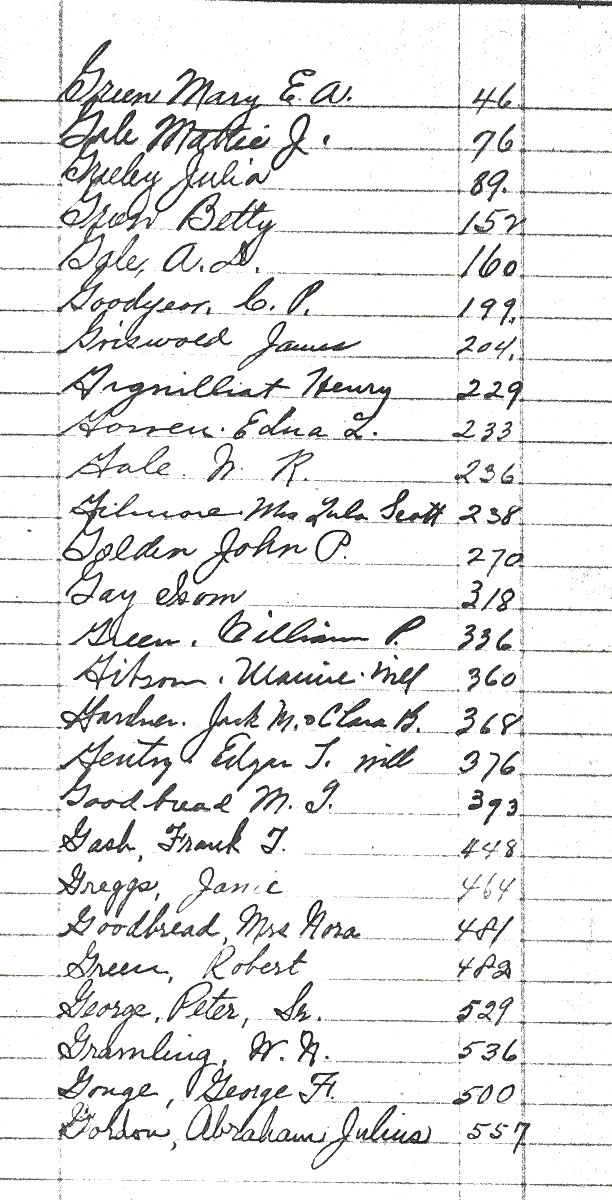 Green Mary E. A. 46
Gale Mattie J. 76
Greeley Julia 89.
Green Betty 152
Gale, A. D. 160
Goodyear, C. P. 199.
Griswold James 204.
Grignilliat Henry 229
Gowen. Edna L. 233
Gale. W. R. 236
Gilmore. Mrs Lula Scott 238
Golden John P. 270
Gay Isom 318
Green. William P. 336
Gibson. Will 360
Gardner. Jack M. & Clara B. 368
Gentry. Edgar T. Will 376
Goodbread M. G. 393
Gash, Frank T. 448
Greggs, Janie 464
Goodbread, Mrs Nora 481
Green, Robert 482
George, Peter, Sr. 529
Gramling, W. N. 536
Gouge, George H. 500
Gordon, Abraham Julius 557